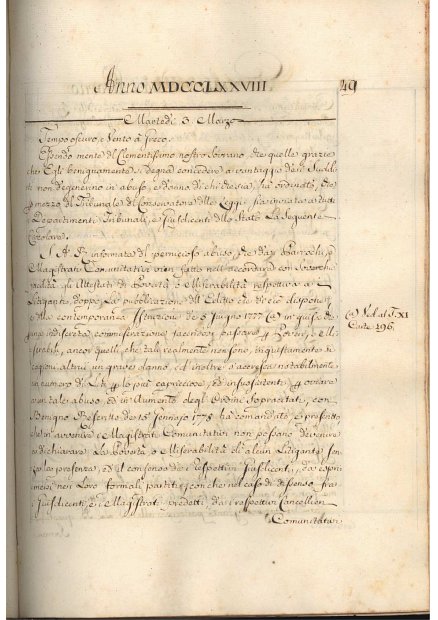 Anno MDCCLXXVIII
49
Martedì 3. Marzo
Tempo oscuro, e Vento à Greco.
Essendo mente del Clementissimo nostro Sovrano, che quelle grazie
che Egli benignamente si degna concedere a vantaggio dei Suddi-
ti non degenerino in abuso, e danno di chi ha ordinato, che
p mezzo del Tribunale di Conservatore delle Leggi sia inviata a tutti
i Dipartimenti Tribunali, e Jusdicenti dello Stato La Seguente
Circolare.
S. A. R. informata del pernicioso abuso, che dai Parrochi, e
Magistrati Comunitativi vien fatto nell'accordare con soverchia
facilità gli Attestati di Povertà o Miserabilità respettiva a
Litiganti, doppo La pubblicazione dell Editto che di ciò dispone
e alla contemporanea Istruzione de 6 Giugno 1777 (a) in quise da
una indiscreta commiserazione facendosi passare p Poveri, e Mi-
serabili, anco quelli, che tali realmente non sono, inquietamente si
cagioni altrui un grave danno, ed inoltre s'accresca notabilmente
il numero di Liti p lo più capricciose, ed insussistenti; p ovviare
a un tale abuso, ed in Aumento degl' Ordini Sopracitati, con
Benigno Rescritto de 15 Gennajo 1778 ha comandato, e prescritto
che in avvenire i Magistrati Comunitativi non possano devenire
a dichiarare La Povertà o Miserabilità di alcun Litigante, sen-
za la presenza, ed il consenso dei respettivi Jusdicenti, da espri-
mersi nei Loro formali partiti, e con che nel caso di dissenso fra
i Jusdicenti, e i Magistrati predetti, dai respettivi Cancellieri
Comunitativi
(a) Ved. al T. XI
Carte 196.